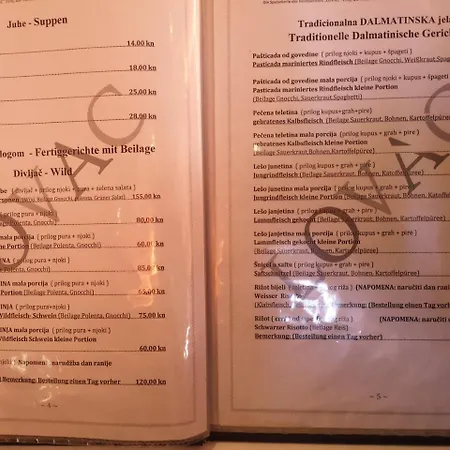 Juhe - Suppen
14,00 kn
18,00 kn
25,00 kn
28,00 kn
logom - Fertiggerichte mit Beilage
Divljač - Wild
be ( divljač + prilog njoki + pura + zelena salata )
rsonen (Wild, Beilage Gnocchi, Polenta, Grüner Salat) 155,00 kn
prilog pura + njoki )
Polenta, Gnocchi) 80,00 kn
mala porcija ( prilog pura + njoki )
e Portion (Beilage Polenta, Gnocchi) 60,00 kn
INA ( prilog pura + njoki )
Polenta, Gnocchi) 85,00 kn
INA mala porcija ( prilog pura + njoki )
Portion (Beilage Polenta, Gnocchi) 65,00 kn
INJA ( prilog pura+njoki )
Wildfleisch- Schwein 75,00 kn
INJA mala porcija ( prilog pura + njoki )
Wildfleisch Schwein kleine Portion
60,00 kn
Napomena: narudžba dan ranije
Bemerkung: Bestellung einen Tag vorher 120,00 kn
- 4 -
Tradicionalna DALMATINSKA jela
Traditionelle Dalmatinische Gerich
Pašticada od govedine ( prilog njoki + kupus + špageti )
Pasticada mariniertes Rindfleisch (Beilage Gnocchi, Weißkraut,Spag
Pašticada od govedine mala porcija ( prilog njoki + kupus + špageti
Pasticada mariniertes Rindfleisch kleine Portion
(Beilage Gnocchi, Sauerkraut,Spaghetti)
Pečena teletina ( prilog kupus+ grah+pire )
gebratenes Kalbsfleisch (Beilage Sauerkraut, Bohnen, Kartoffelpüre
Pečena teletina mala porcija ( prilog kupus+grah+pire )
gebratenes Kalbsfleisch kleine Portion
(Beilage Sauerkraut,Bohnen,Kartoffelpüree)
Lešo junetina ( prilog kupus + grah + pire )
Jungrindfleisch (Beilage Sauerkraut, Bohnen, Katoffelpüree)
Lešo junetina mala porcija ( prilog kupus + grah + pire )
Jungrindfleisch kleine Portion (Beilage Sauerkraut, Bohnen, Katoffe
Lešo janjetina ( prilog kupus + grah + pire )
Lammfleisch gekocht (Beilage Sauerkraut, Bohnen, Kartoffelpüree)
Lešo janjetina mala porcija ( prilog kupus + grah + pire )
Lammfleisch gekocht kleine Portion
(Beilage Sauerkraut, Bohnen, Kartoffelpüree)
Šnicel u saftu ( prilog kupus + grah + pire )
Saftschnitzel (Beilage Sauerkraut, Bohnen, Kartoffelpüree)
Rižot bijeli riža ) (NAPOMENA: naručiti dan
Weisser
(Kalbsfleisch, Bemerkung: (Bestellung einen Tag vorh
Rižot ( crni riža ) (NAPOMENA: naručiti
Schwarzer Risotto (Beilage Reis)
Bemerkung: (Bestellung einen Tag vorher)
- 5 -
KOVAČ